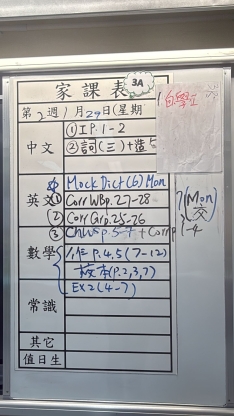 家課表
3A
1. 自學工
第2週 1月29日(星期
中文
① I P.1-2
② 詞(三)+造5
英文
Mock Dict (6) Mon
① Corr WBp.27-28
② Corr Grp.25-26
③ Ch WBp.5-7 + Corr p.2-4
(Mon)
交
數學
P.4.5 (7-12)
校本(P.2,3,7)
EX2 (4-7)
常識
其它
值日生